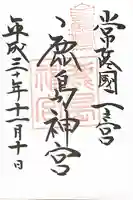 常陸國一之宮
鹿島神宮
平成三十年十一月十日